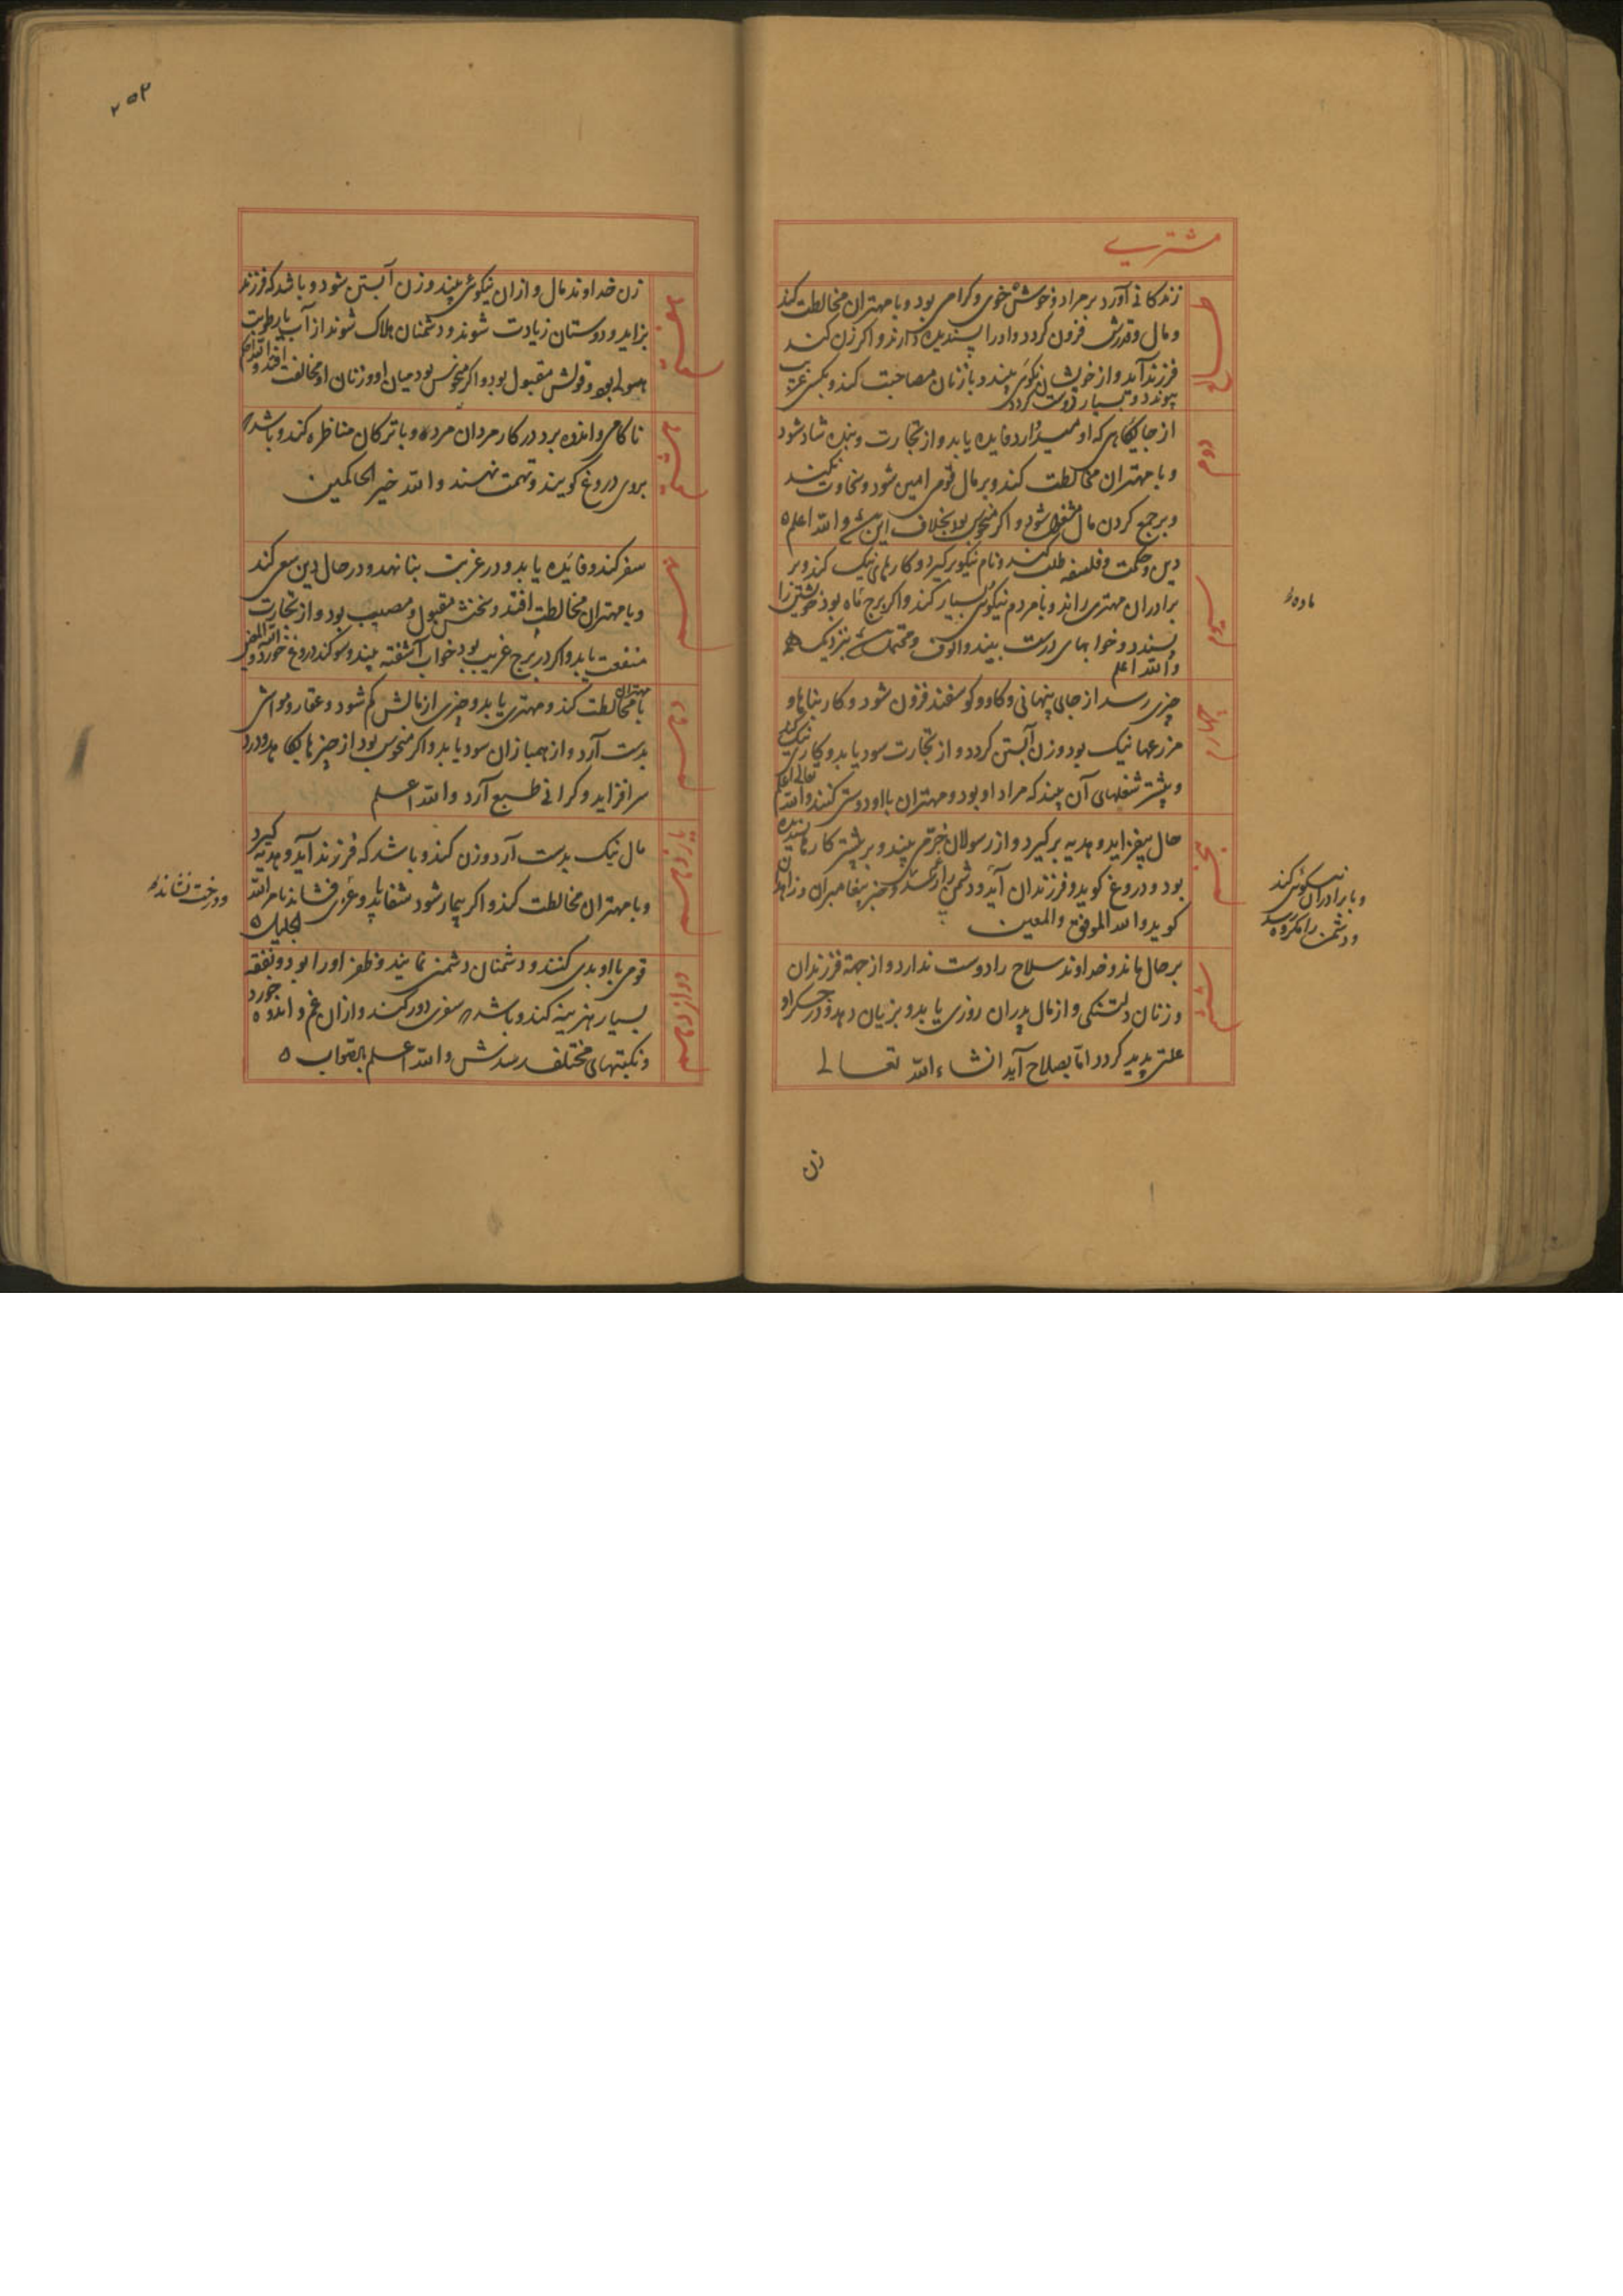 مشتری
طالع
زندکانی آورد بر مراد و خوش خوی و کرامی بود و با مهتران مخالطت کند
و مال و قدرش فزون کردد و او را پسندیده دارند و اکر زن کند
فرزند آید و از خویشان نکوی بیند و با زنان مصاحبت کند و بکسی غریب
پیوندد و بسیار کردد
دوم
از جایکاهی که اومید دارد فایده یابد و از تجارت و بنده شاد شود
و با مهتران مخالطت کند و بر مال قومی امین شود و سخاوت نکند
و بر جمع کردن مال مشغول شود و اکر منحوس بود بخلاف این و الله اعلم
سوم
دین و حکمت و فلسفه طلب کند و نام نیکو برکیرد و کارهای نیک کند و بر
برادران مهتری راند و با مردم نیکوی بسیار کند و اکر برج ماده بود خویشتن را
پسندد و خوابهای درست بیند
والله اعلم
چهارم
چیزی رسد از جای پنهانی و کاو و کوسفند فزون شود و کار بناها و
مزرعها نیک بود و زن آبستن کردد و از تجارت سود یابد و کارهای نیک کند
و بیشتر شغلهای آن بیند که مراد او بود و مهتران با او دوستی کنند والله
تعالی اعلم
پنجم
حال بیفزاید و هدیه برکیرد و از رسولان خرمی بیند و بر بیشتر کارها پسندیده
بود و دروغ کوید و فرزندان آید و دشمن را و خبر پیغامبران و زاهدان
کوید والله الموفق والمعین
ششم
بر حال بماند و خداوند سلاح را دوست ندارد و از جهة فرزندان
و زنان دلتنکی و از مال پدران روزی یابد و بزیان دهد و در جکر او
علتی پدید کردد اما بصلاح آید انشاء الله تعالی
ماده
و با برادران نیکوئی کند
و دشمن را مکروه رسد
زن
۲۵۲
هفتم
زن خداوند مال و ازان نیکوئی بیند و زن آبستن شود و باشد که فرزند
بزاید و دوستان زیادت شوند و دشمنان هلاک شوند از آب یا رطوبت
و قولش مقبول بود و اکر منحوس بود میان او و زنان او مخالفت افتد والله اعلم
هشتم
ناکامی و اندوه برد در کار مردان مرده و با ترکان مناظره کند و باشد
بروی دروغ کویند و تهمت نهند والله خیر الحاکمین
نهم
سفر کند و فایده یابد و در غربت بنا نهد و در حال دین سعی کند
و با مهتران مخالطت افتد و سخنش مقبول و مصیب بود و از تجارت
منفعت یابد و اکر در برج غریب بود خواب آشفته بیند و سوکند دروغ خورد
دهم
با مهتران مخالطت کند و مهتری یابد و چیزی از مالش کم شود و عقار و مواشی
بدست آرد و از همبازان سود یابد و اکر منحوس بود از چیزها
سر افزاید و کرانی طبع آرد والله اعلم
یازدهم
مال نیک بدست آرد و زن کند و باشد که فرزند آید و هدیه کیرد
و با مهتران مخالطت کند و اکر بیمار شود شفا یابد
الجلیل
و درخت نشاند
دوازدهم
قومی با او بدی کنند و دشمنان دشمنی نمایند و ظفر او را بود و نفقه
بسیار هزینه کند و باشد سفری دور کند و ازان غم و اندوه خورد
و نکبتهای مختلف رسدش والله اعلم بالصواب